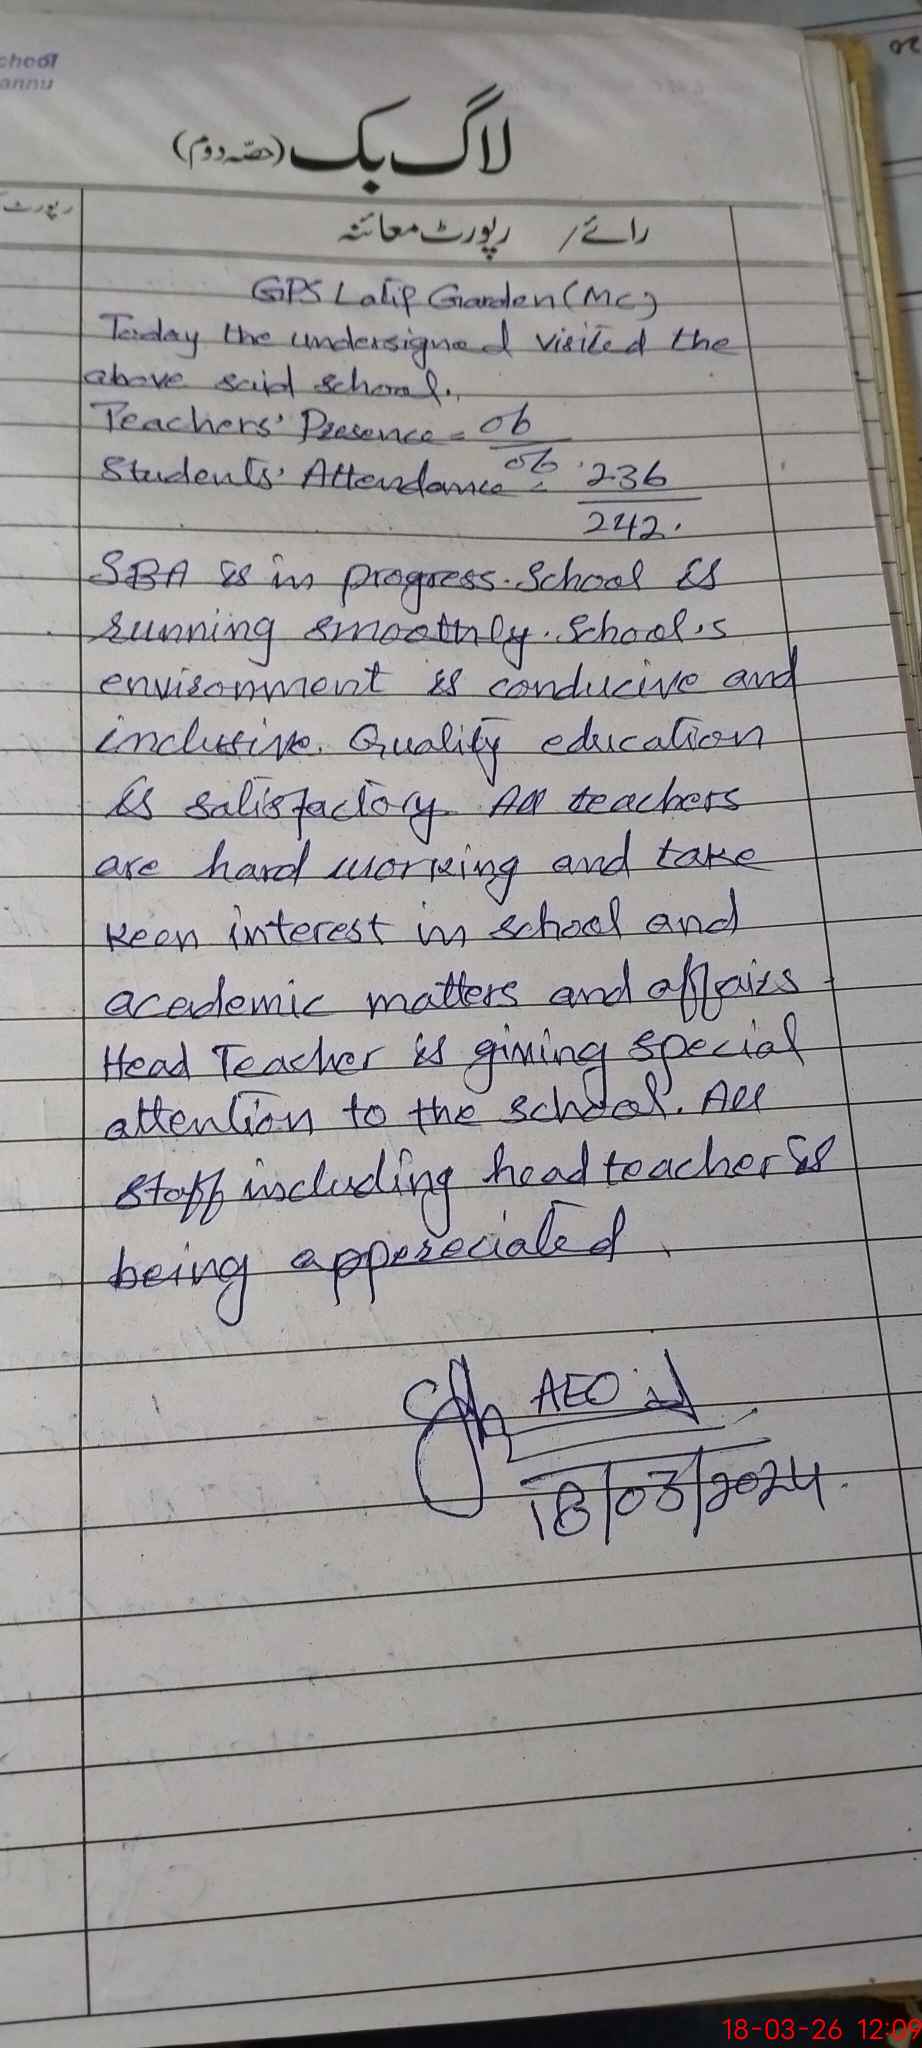 chool
annu
لاگ بک (حصّہ دوم)
رائے / رپورٹ معائنہ
رپورٹ
GPS Latif Garden (MC)
Today the undersigned visited the
above said school.
Teachers' Presence = 06
06
Students' Attendance = 236
242.
SBA is in progress. School is
running smoothly. School's
environment is conducive and
inclusive. Quality education
is satisfactory. All teachers
are hard working and take
keen interest in school and
academic matters and affairs.
Head Teacher is giving special
attention to the school. All
staff including head teacher is
being appereciated.
AEO
18/03/2024.
18-03-26 12:09